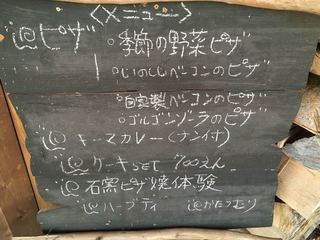 <メニュー>
@ピザ
。季節の野菜ピザ
。いのししベーコンのピザ
。自家製ベーコンのピザ
。ゴルゴンゾーラのピザ
@キーマカレー(ナン付)
@ケーキSET 700えん
@石窯ピザ焼体験
@ハーブティ @かたつむり